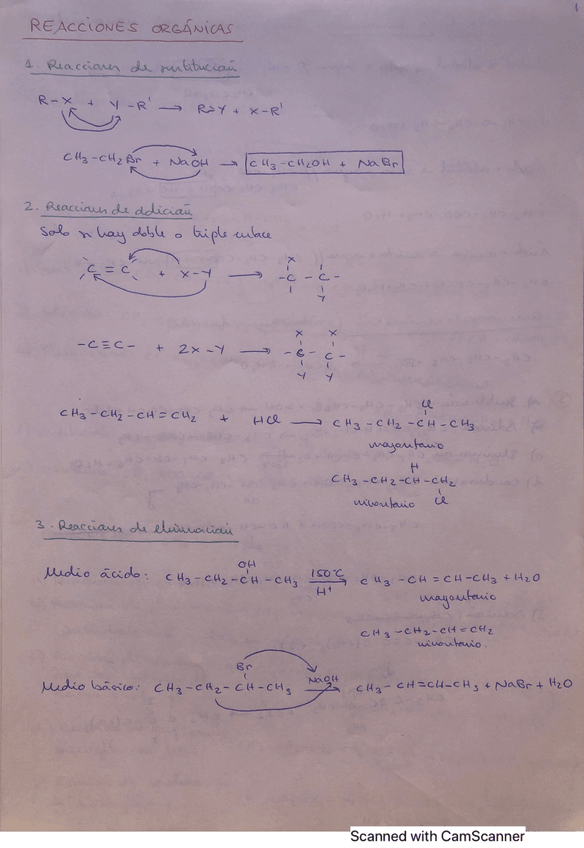 1
REACCIONES ORGÁNICAS
1. Reacciones de sustitución
R-X + Y-R' → R-Y + X-R'
CH3-CH2Br + NaOH → CH3-CH2OH + NaBr
2. Reacciones de adición
Solo si hay doble o triple enlace
C = C + X-Y →
X
-C - C-
Y
-C≡C- + 2X-Y →
X X
-C - C-
Y Y
Cl
CH3-CH2-CH=CH2 + HCl → CH3-CH2-CH-CH3
mayoritario
H
CH3-CH2-CH-CH2
minoritario Cl
3. Reacciones de eliminación
OH
Medio ácido: CH3-CH2-CH-CH3 150ºC H+ → CH3-CH=CH-CH3 + H2O
mayoritario
CH3-CH2-CH=CH2
minoritario.
Br
Medio básico: CH3-CH2-CH-CH3 NaOH → CH3-CH=CH-CH3 + NaBr + H2O
Scanned with CamScanner